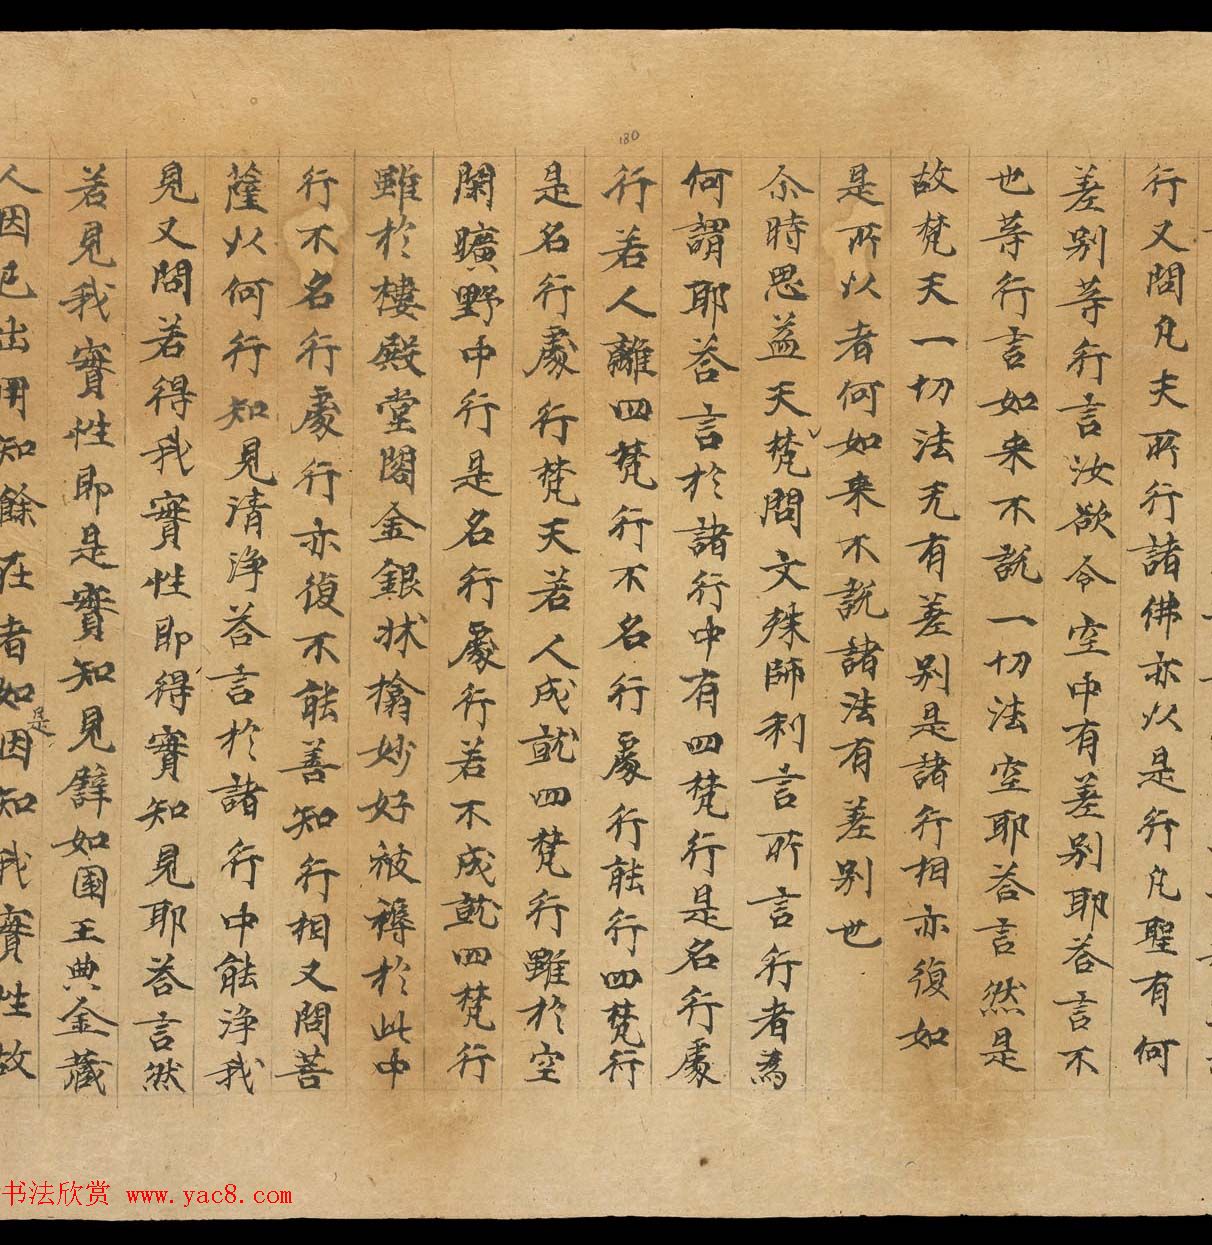 行又問凡夫所行諸佛亦以是行凡聖有何
差別等行言汝欲令空中有差別耶答言不
也等行言如来不說一切法空耶答言然是
故梵天一切法无有差別是諸行相亦復如
是所以者何如来不說諸法有差別也
尒時思益天梵問文殊師利言所言行者為
何謂耶答言於諸行中有四梵行是名行處
行若人離四梵行不名行處行能行四梵行
是名行處行梵天若人成就四梵行雖於空
閑曠野中行是名行處行若不成就四梵行
雖於樓殿堂閣金銀牀榻妙好被褥於此中
行不名行處行亦復不能善知行相又問菩
薩以何行知見清淨答言於諸行中能淨我
見又問若得我實性即得實知見耶答言然
若見我實性即是實知見譬如國王典金藏
人因已出用知餘在者如是因知我實性故
180
书法欣赏 www.yac8.com